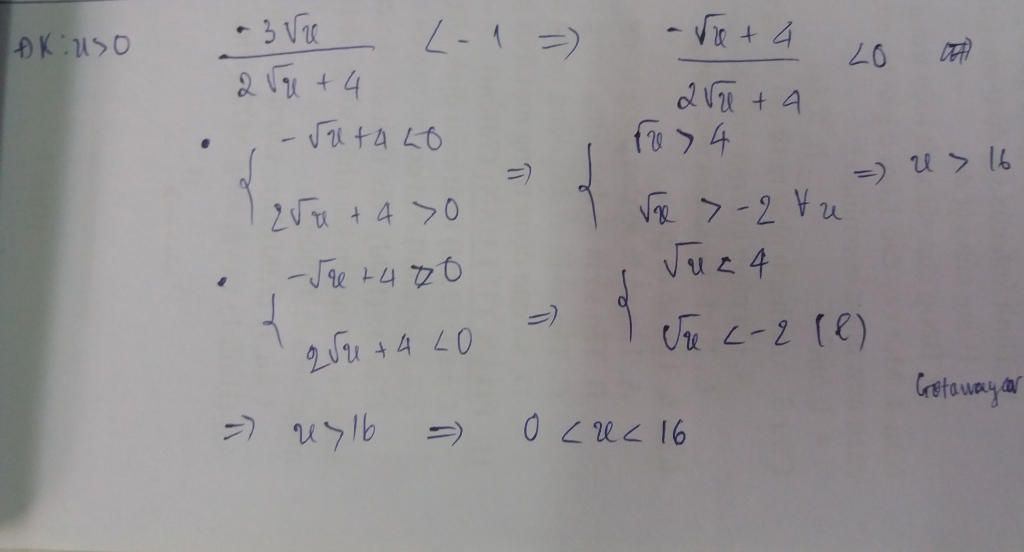 ĐK: x>0 -3√x / 2√x + 4 < -1 => -√x + 4 / 2√x + 4 < 0
• { -√x + 4 < 0 => { √x > 4 => x > 16
2√x + 4 > 0 √x > -2 ∀x
• { -√x + 4 > 0 => { √x < 4
2√x + 4 < 0 √x < -2 (l)
Getawaycar
=> x > 16 => 0 < x < 16